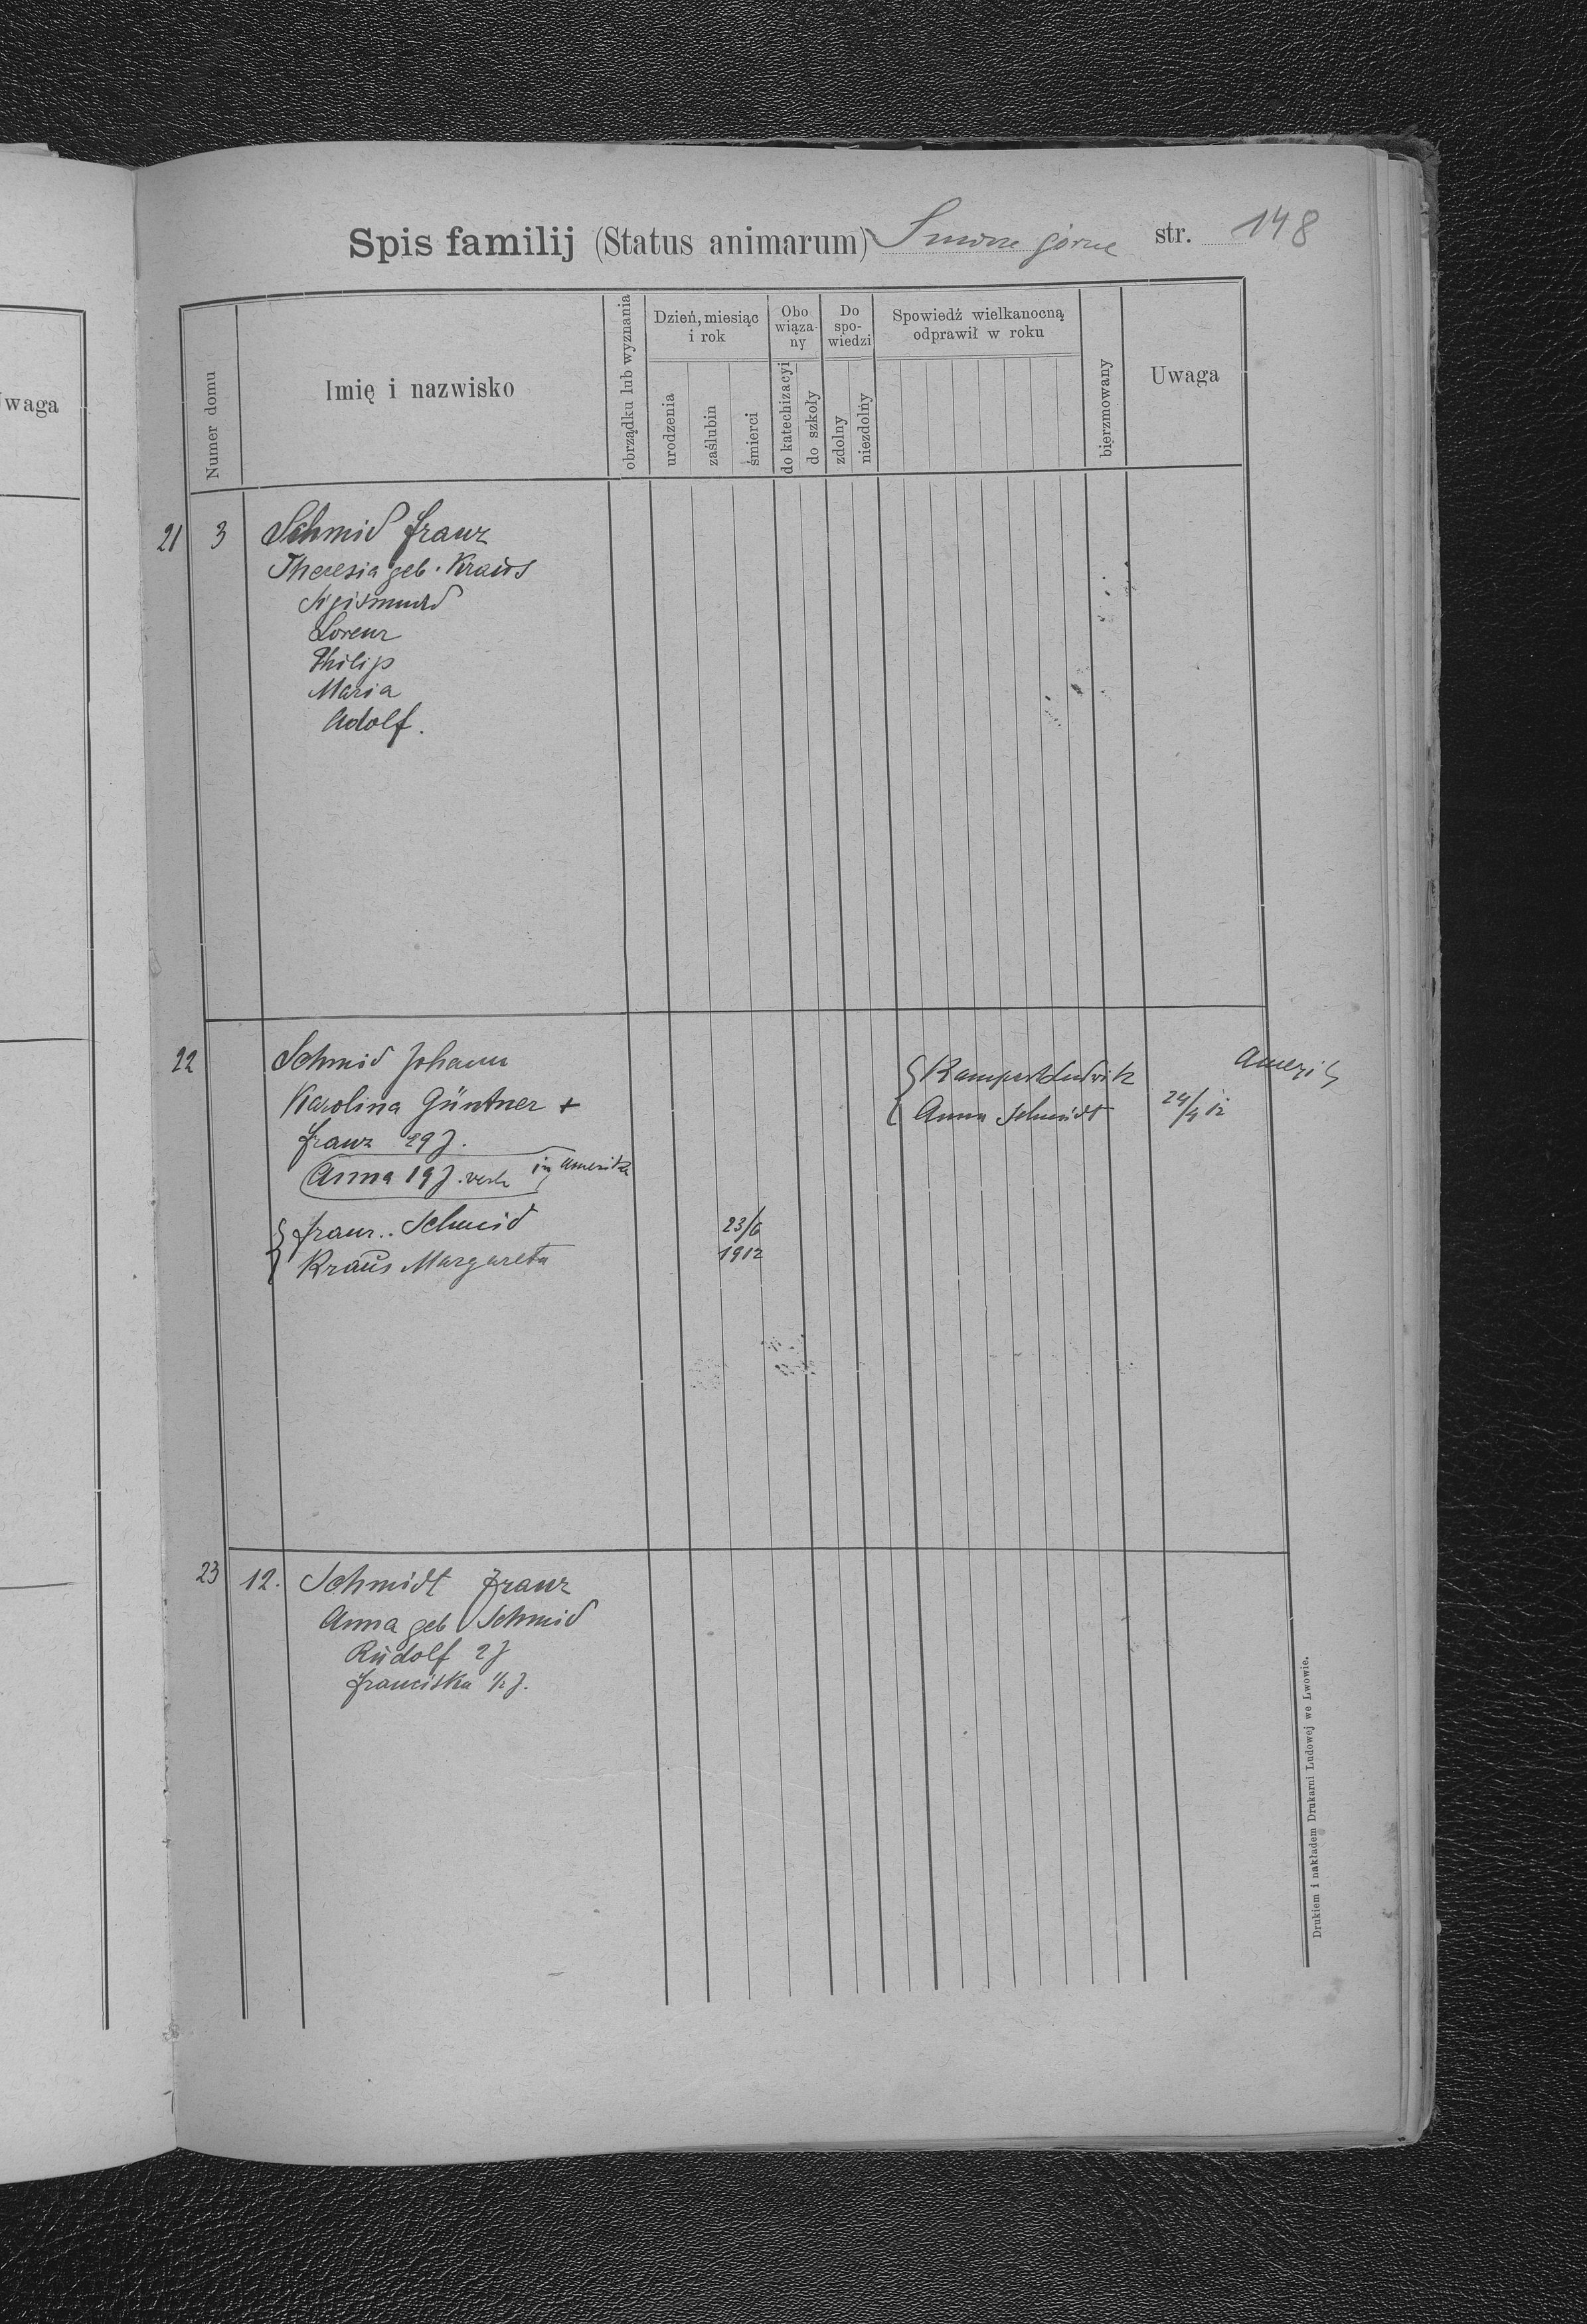 Spis familij (Status animarum) Smorze górne str. 148
Numer domu
Imię i nazwisko
obrządku lub wyznania
Dzień, miesiąc i rok
urodzenia
zaślubin
śmierci
Obowiąza-ny
do katechizacyi
do szkoły
Do spo-wiedzi
zdolny
niezdolny
Spowiedź wielkanocną odprawił w roku
bierzmowany
Uwaga
waga
21 3 Schmid Franz
Theresia geb. Kraus
Sigismund
Lorenz
Philip
Maria
Adolf.
22 Schmid Johann
Karolina Güntner +
Franz 29 J.
Anna 19 J. verh in Amerika
{ Franz.. Schmid 23/6
Kraus Margareta 1912
{ Rampert Ludwik
Anna Schmidt 24/4 12
23 12. Schmidt Franz
Anna geb Schmid
Rudolf 2 J
Franciska 1/2 J.
Drukiem i nakładem Drukarni Ludowej we Lwowie.